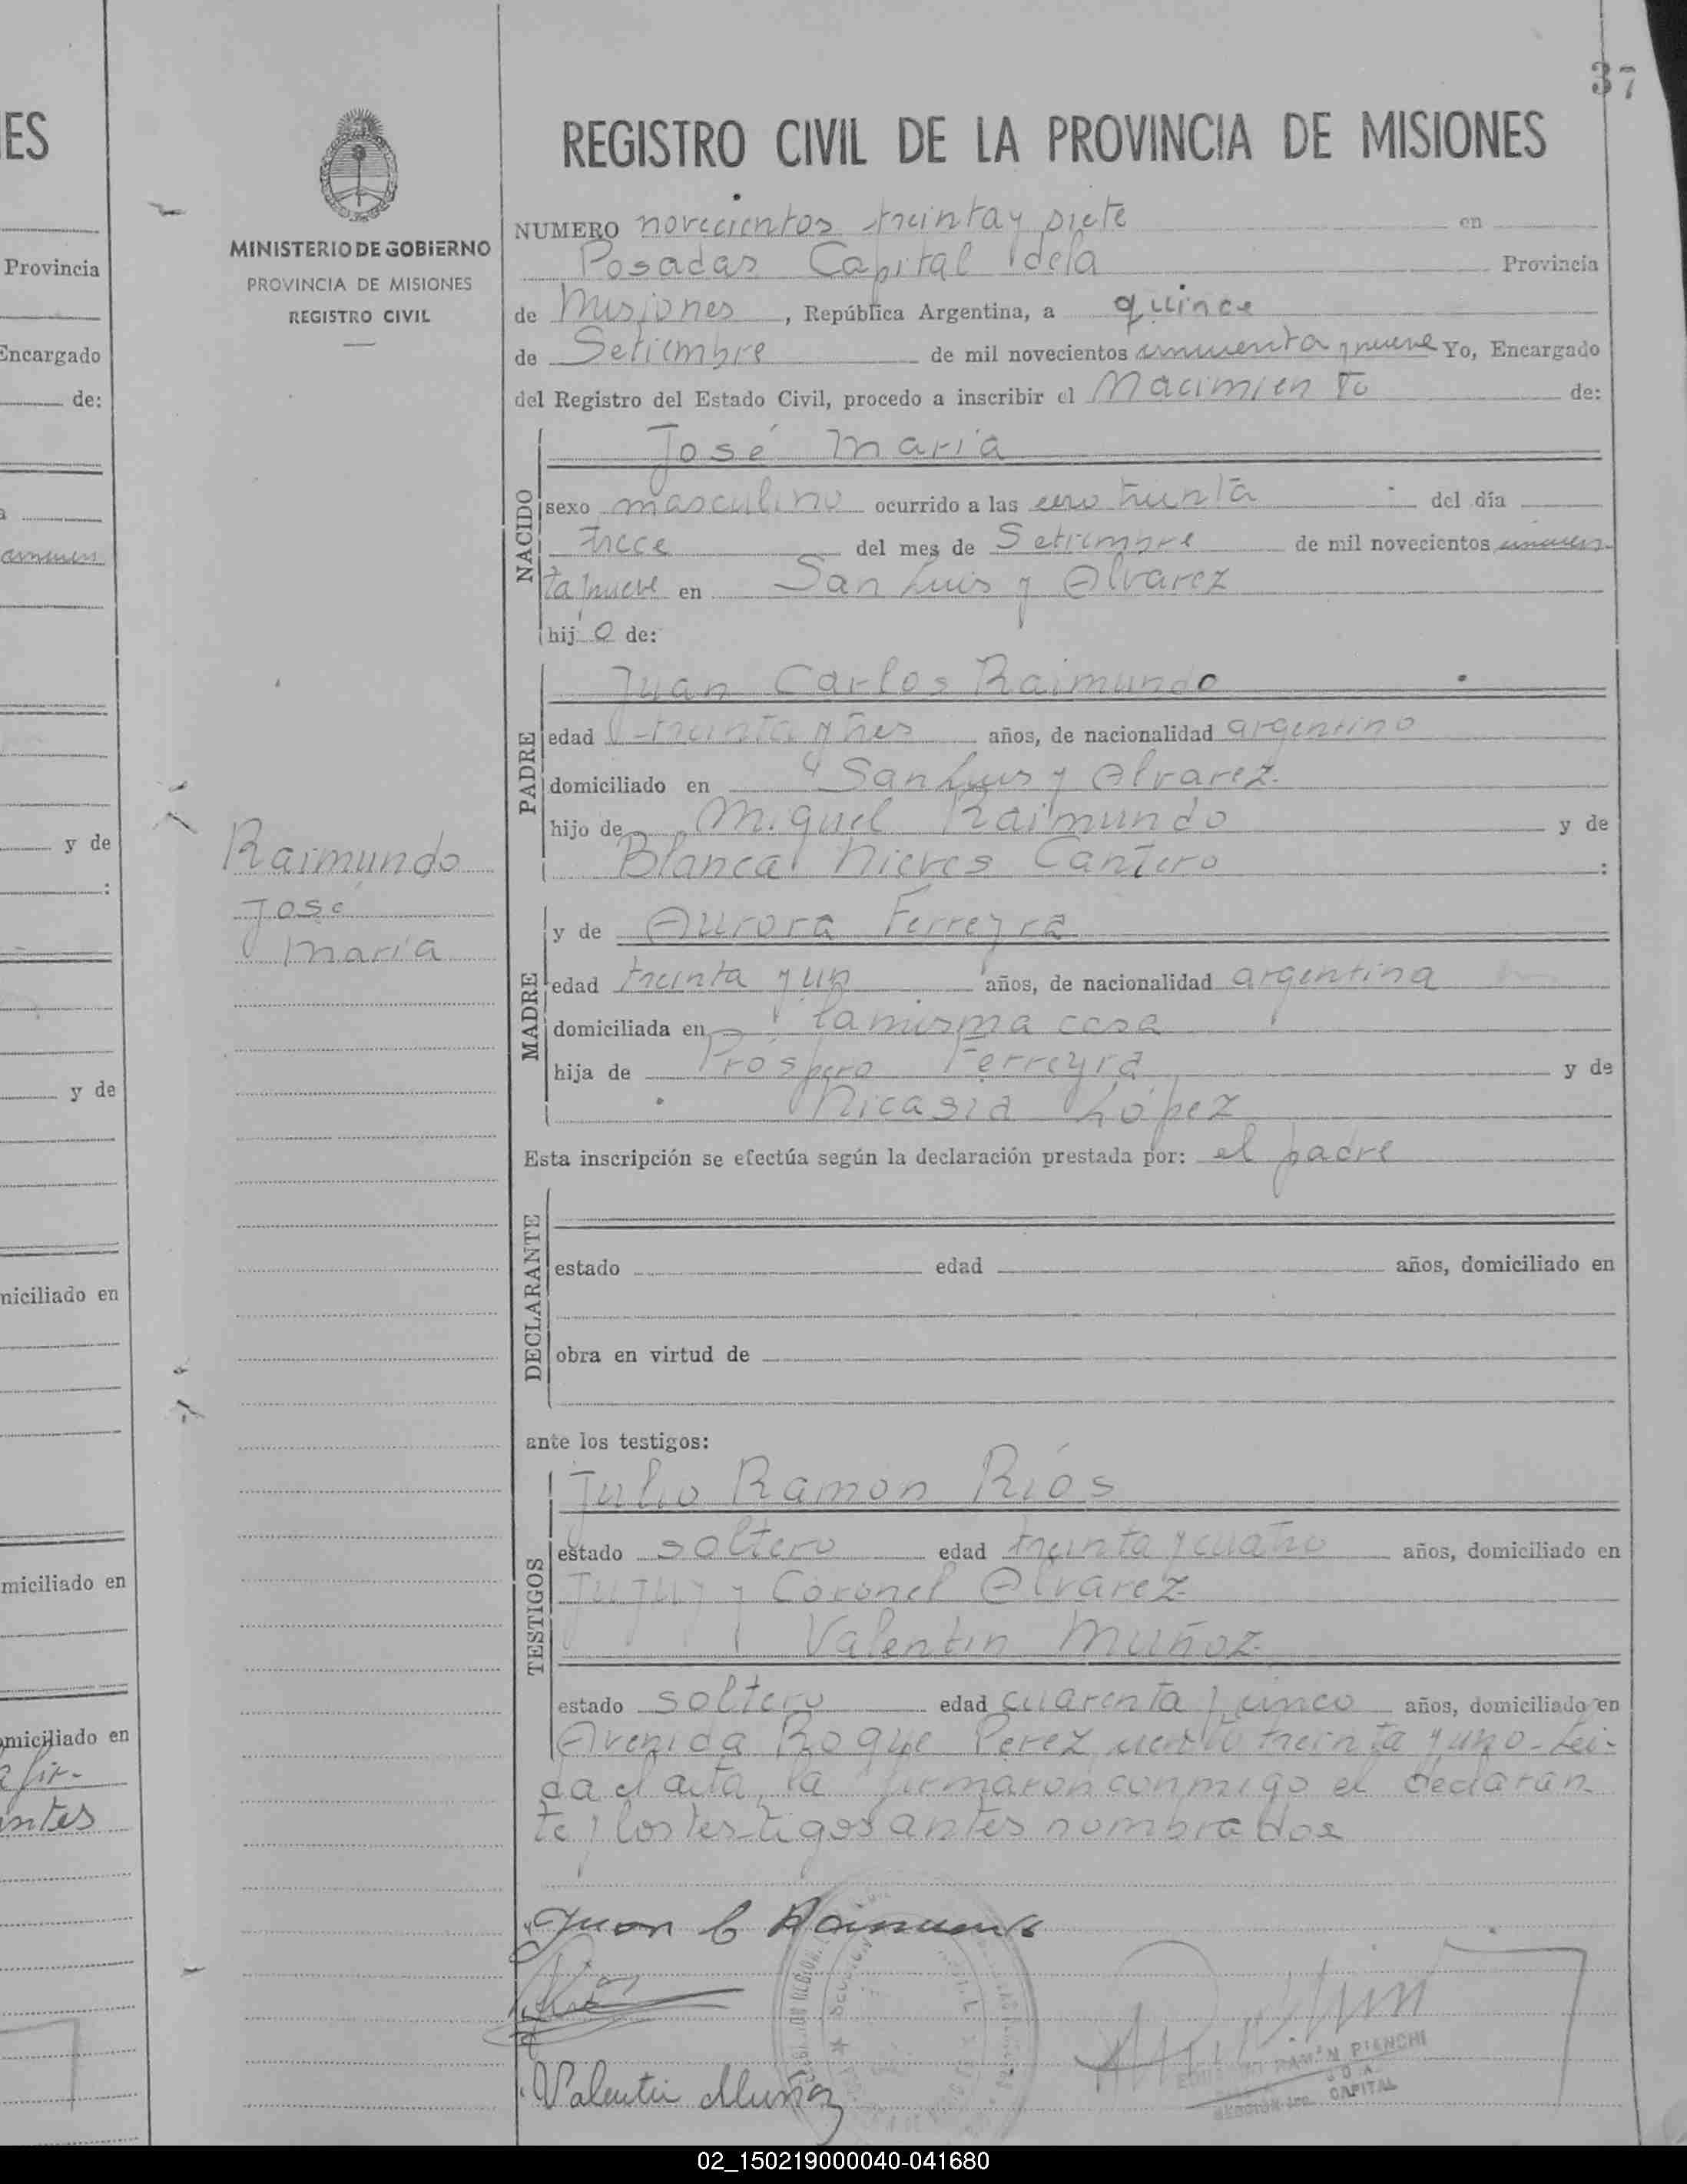 37
ES
REGISTRO CIVIL DE LA PROVINCIA DE MISIONES
MINISTERIO DE GOBIERNO
PROVINCIA DE MISIONES
REGISTRO CIVIL
Provincia
Encargado
de:
y de
y de
miciliado en
miciliado en
omiciliado en
a fir-
antes
Raimundo
José
maria
NUMERO novecientos treinta y siete en
Posadas Capital de la Provincia
de Misiones, República Argentina, a quince
de Setiembre de mil novecientos cincuenta y nueve Yo, Encargado
del Registro del Estado Civil, procedo a inscribir el Nacimiento de:
NACIDO
José Maria
sexo masculino ocurrido a las cero treinta del día
trece del mes de Setiembre de mil novecientos cincuen-
ta y nueve en San Luis y Alvarez
hijo de:
PADRE
Juan Carlos Raimundo
edad treinta y tres años, de nacionalidad argentino
domiciliado en San Luis y Alvarez.
hijo de Miguel Raimundo y de
Blanca Nieves Cantero :
MADRE
y de Aurora Ferreyra
edad treinta y un años, de nacionalidad argentina
domiciliada en la misma casa
hija de Próspero Ferreyra y de
Nicasia López
Esta inscripción se efectúa según la declaración prestada por: el padre
DECLARANTE
estado edad años, domiciliado en
obra en virtud de
ante los testigos:
TESTIGOS
Julio Ramón Ríos
estado soltero edad treinta y cuatro años, domiciliado en
Jujuy y Coronel Alvarez
Valentin Muñoz
estado soltero edad cuarenta y cinco años, domiciliado en
Avenida Roque Perez ciento treinta y uno-Lei-
da el acta, la firmaron conmigo el declaran
te y los testigos antes nombrados
Juan C Raimundo
Valentin Muñoz
RAMON PIENCHI
CAPITAL
02_150219000040-041680